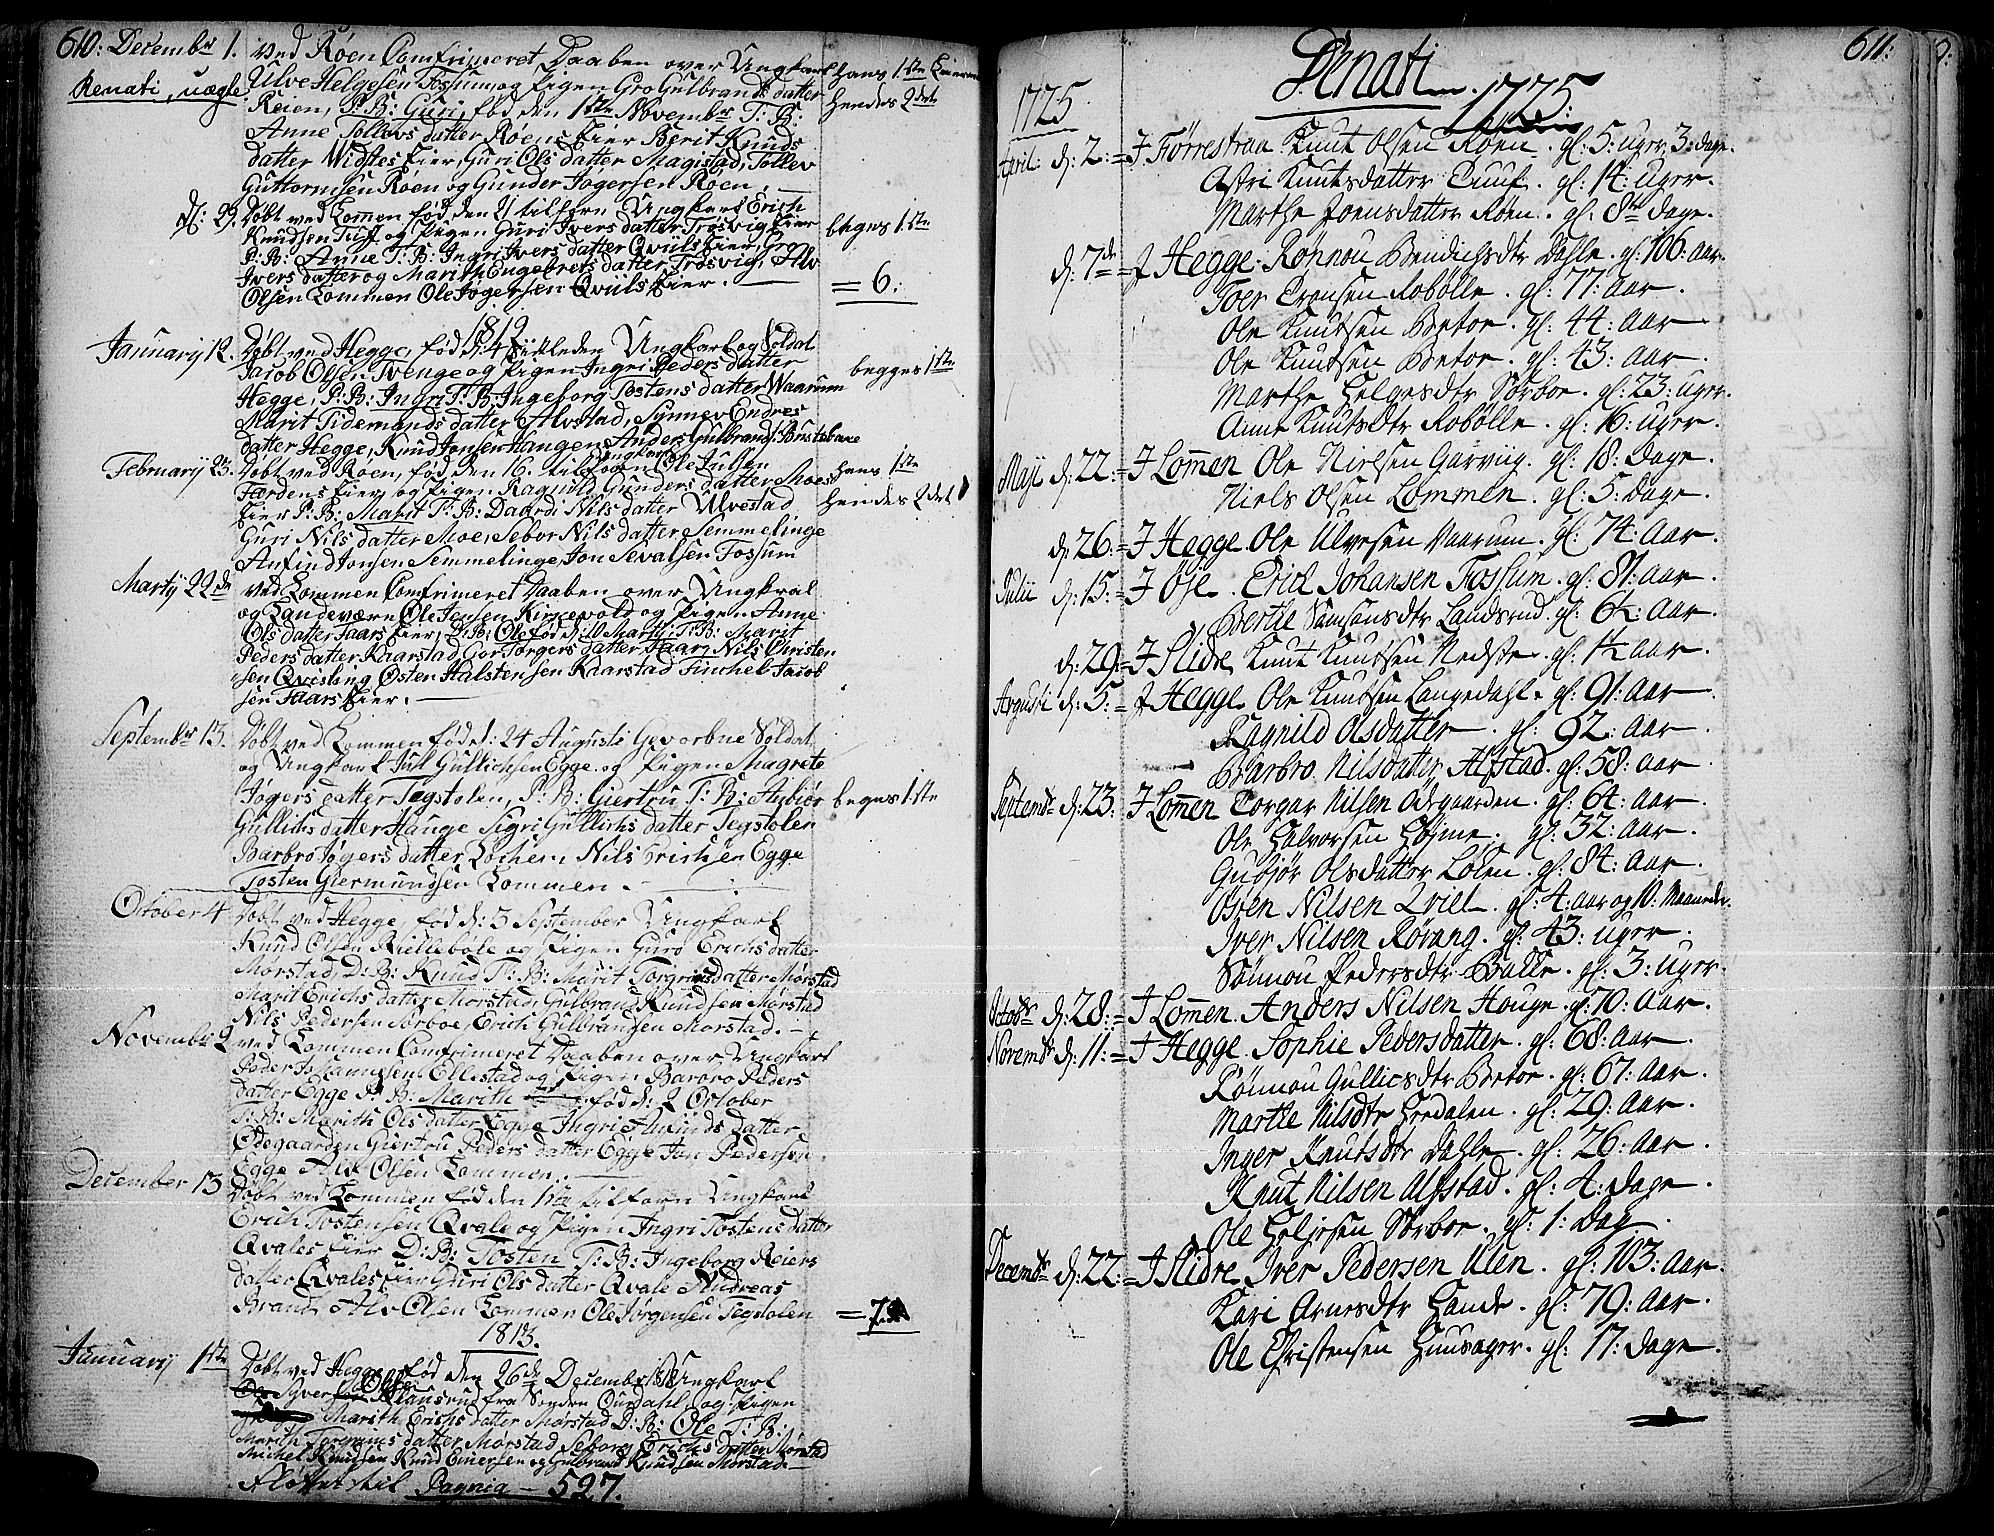 610: Decembr 1.
Renati, uægte
ved Røen Comfrimeret Daaben over Ungkarl
Ulve Helgesen Fossum og Pigen Gro Gulbrands datter
Reien, P: B: Guri, fød den 1ste Novembr T: B:
Anne Tollevs datter Røens Eier Berit Knuds
datter Widstes Eier, Guri Ols datter Magistad, Tollev
Guttormsen Røen og Gunder Jøgersen Røen.
hans 1ste
hendes 2det
d: 29. Døbt ved Lomen fød den 21 tilforn Ungkarl Erich
Knudsen Tuff og Pigen Guri Ivers datter Trøsvig Eier
P: B: Anne T: B: Ingri Ivers datter Qviils Eier, Gro
Ivers datter og Marith Engebrets datter Trøsvich, Alv
Olsen Lommen Ole Jøgersen Qviils Eier.
beges 1ste
= 6:
1812
Januarij 12. Døbt ved Hegge, fød d: 4 Ungkarl og Soldat
Jacob Olsen Tvenge og Pigen Ingri Peders datter
Hegge, P: B: Ingri T: B: Ingeborg Tostens datter Waarum
Marit Tidemands datter Alvstad, Synnev Endres
datter Hegge, Knud Jonsen Haugen Anders Gulbrands:
begges 1ste
Februarij 23. Døbt ved Røen, fød den 16. tilforn Ungkarl Ole Julsen
Færdens Eier og Pigen Ragnild Gunders datter Moes
Eier P: B: Marit T: B: Daardi Nils datter Ulvestad
Guri Nils datter Moe, Sebor Nils datter Semmelinge
Anfind Jonsen Semmelinge Jon Sevalsen Fossum
hans 1ste
hendes 2det
Martij 22de ved Lommen Comfrimeret Daaben over Ungkral
og Landeværn Ole Jensen Kirkevold og Pigen Anne
Ols datter Faars Eier, P: B: Ole fød d: 10 Martij T: B: Marit
Peders datter Kaarstad Gor Torgers datter Haarj Nils Christen
sen Qvisling Østen Halstensen Kaarstad Finchel Jacob
sen Faars Eier.
Septembr 13. Døbt ved Lommen fød d: 24 Augusti Gevorbne Soldat
og Ungkarl Jull Gullichsen Egge og Pigen Magrete
Jøgers datter Tegstolen, P: B: Giertru T: B: Anbiør
Gullichs datter Hauge Sigri Gullichs datter Tegstolen
Barbro Jøgers datter Lochen Nils Erichsen Egge
Tosten Giermundsen Lommen.
beges 1ste
October 4 Døbt ved Hegge, fød d: 3 September Ungkarl
Knud Olsen Kiellebøle og Pigen Guro Erichs datter
Mørstad, D: B: Knud T: B: Marit Torgrims datter Mørstad
Marit Erichs datter Mørstad, Gulbrand Knudsen Mørstad
Nils Pedersen Sørboe, Erich Gulbrandsen Mørstad.
Novembr 2 ved Lommen Comfrimeret Daaben over Ungkarl
Peder Johannesen Ellestad og Pigen Barbro Peders
datter Egge P: B: Marith fød d: 2 October
T: B: Marith Ols datter Egge Ingri Anfinds datter
Ødegaarden Giertru Peders datter Egge Jan Pedersen
Egge Alv Olsen Lommen.
December 13 Døbt ved Lommen fød den 12te tilforn Ungkarl
Erich Tostensen Qvale og Pigen Ingri Tostens datter
Qvales Eier D: B: Tosten T: B: Ingeborg Reiers
datter Qvales Eier Guri Ols datter Qvale Andreas
Brand Alv Olsen Lommen Ole Jørgensen Tegstolen
= 7
1813.
Januarij 1ste Døbt ved Hegge fød den 26de December 1812 Ungkarl
Ole Syversen Klausrud fra Sønden Ourdahl, og Pigen
Marith Erichs datter Mørstad D: B: Ole T: B:
Marith Torgrims datter Mørstad Seborg Erichs datter Mørstad
Michel Knudsen Knud Einersen og Gulbrand Knudsen Mørstad.
Flottes til Pagnia 527.
611:
Denati 1725:
1725
April: d: 2: = J Førrestraa Knut Olsen Røen. gl: 5: uger 3: dage.
Astri Knutsdatter Tuuf. gl: 14: uger.
Marthe Joensdatter Røen. gl: 8te dage.
d: 7de = J Hegge. Rønnou Bendichsdtr Dahle. gl: 106: aar
Toer Tronsen Robølle. gl: 77: aar.
Ole Knutsen Bretor. gl: 44: aar
Ole Knutsen Bretor. gl: 43: aar.
Marthe Helgesdtr Sørboe. gl: 23: uger.
Anne Knutsdtr Robølle. gl: 16: uger.
Maji d: 22: = J Lomen Ole Nielsen Garviig. gl: 18: dage.
Niels Olsen Lommen. gl: 5: dage
d: 26: = J Hegge Ole Ulvesen Vaarum. gl: 74: aar.
Julii d: 15: = J Øje. Erick Johansen Fossum. gl: 81: aar
Berthe Samsonsdtr Landsrud. gl: 62: aar.
d: 29: = J Slidre Knut Knutsen Nedste. gl: 12 aar.
Augusti d: 5: = J Hegge. Ole Knutsen Langedahl. gl: 91: aar
Ragnild Olsdatter. gl: 92: aar.
Barbro Nilsdatter Alfstad. gl: 58: aar
Septembr d: 23: J Lomen Torgar Nilsen Ødegaarden. gl: 64: aar
Ole Halvorsen Højme. gl: 32: aar.
Gubjør Olsdatter Løken. gl: 84: aar.
Østen Nilsen Qviel. gl: 4: aar og 10: Maaneder.
Iver Nilsen Røvang. gl: 43: uger.
Sønnou Pedersdtr Balle. gl: 3: uger.
Octobr d: 28: = J Lomen. Anders Nilsen Houge. gl: 70: aar.
Novembr d: 11: = J Hegge. Sophie Pedersdatter. gl: 68: aar.
Rønnou Gullicsdtr Bretor. gl: 67: aar.
Marthe Nilsdtr Heedalen. gl: 29: aar.
Inger Knutsdtr Dahle. gl: 26: aar.
Knut Nilsen Alfstad. gl: 4: dage.
Ole Helgesen Sørboe. gl: 1: dag.
Decembr d: 22: = J Slidre Iver Pedersen Ulen. gl: 103: aar.
Kari Arnesdtr Hande. gl: 79: aar.
Ole Christensen Huusager. gl: 17: dage